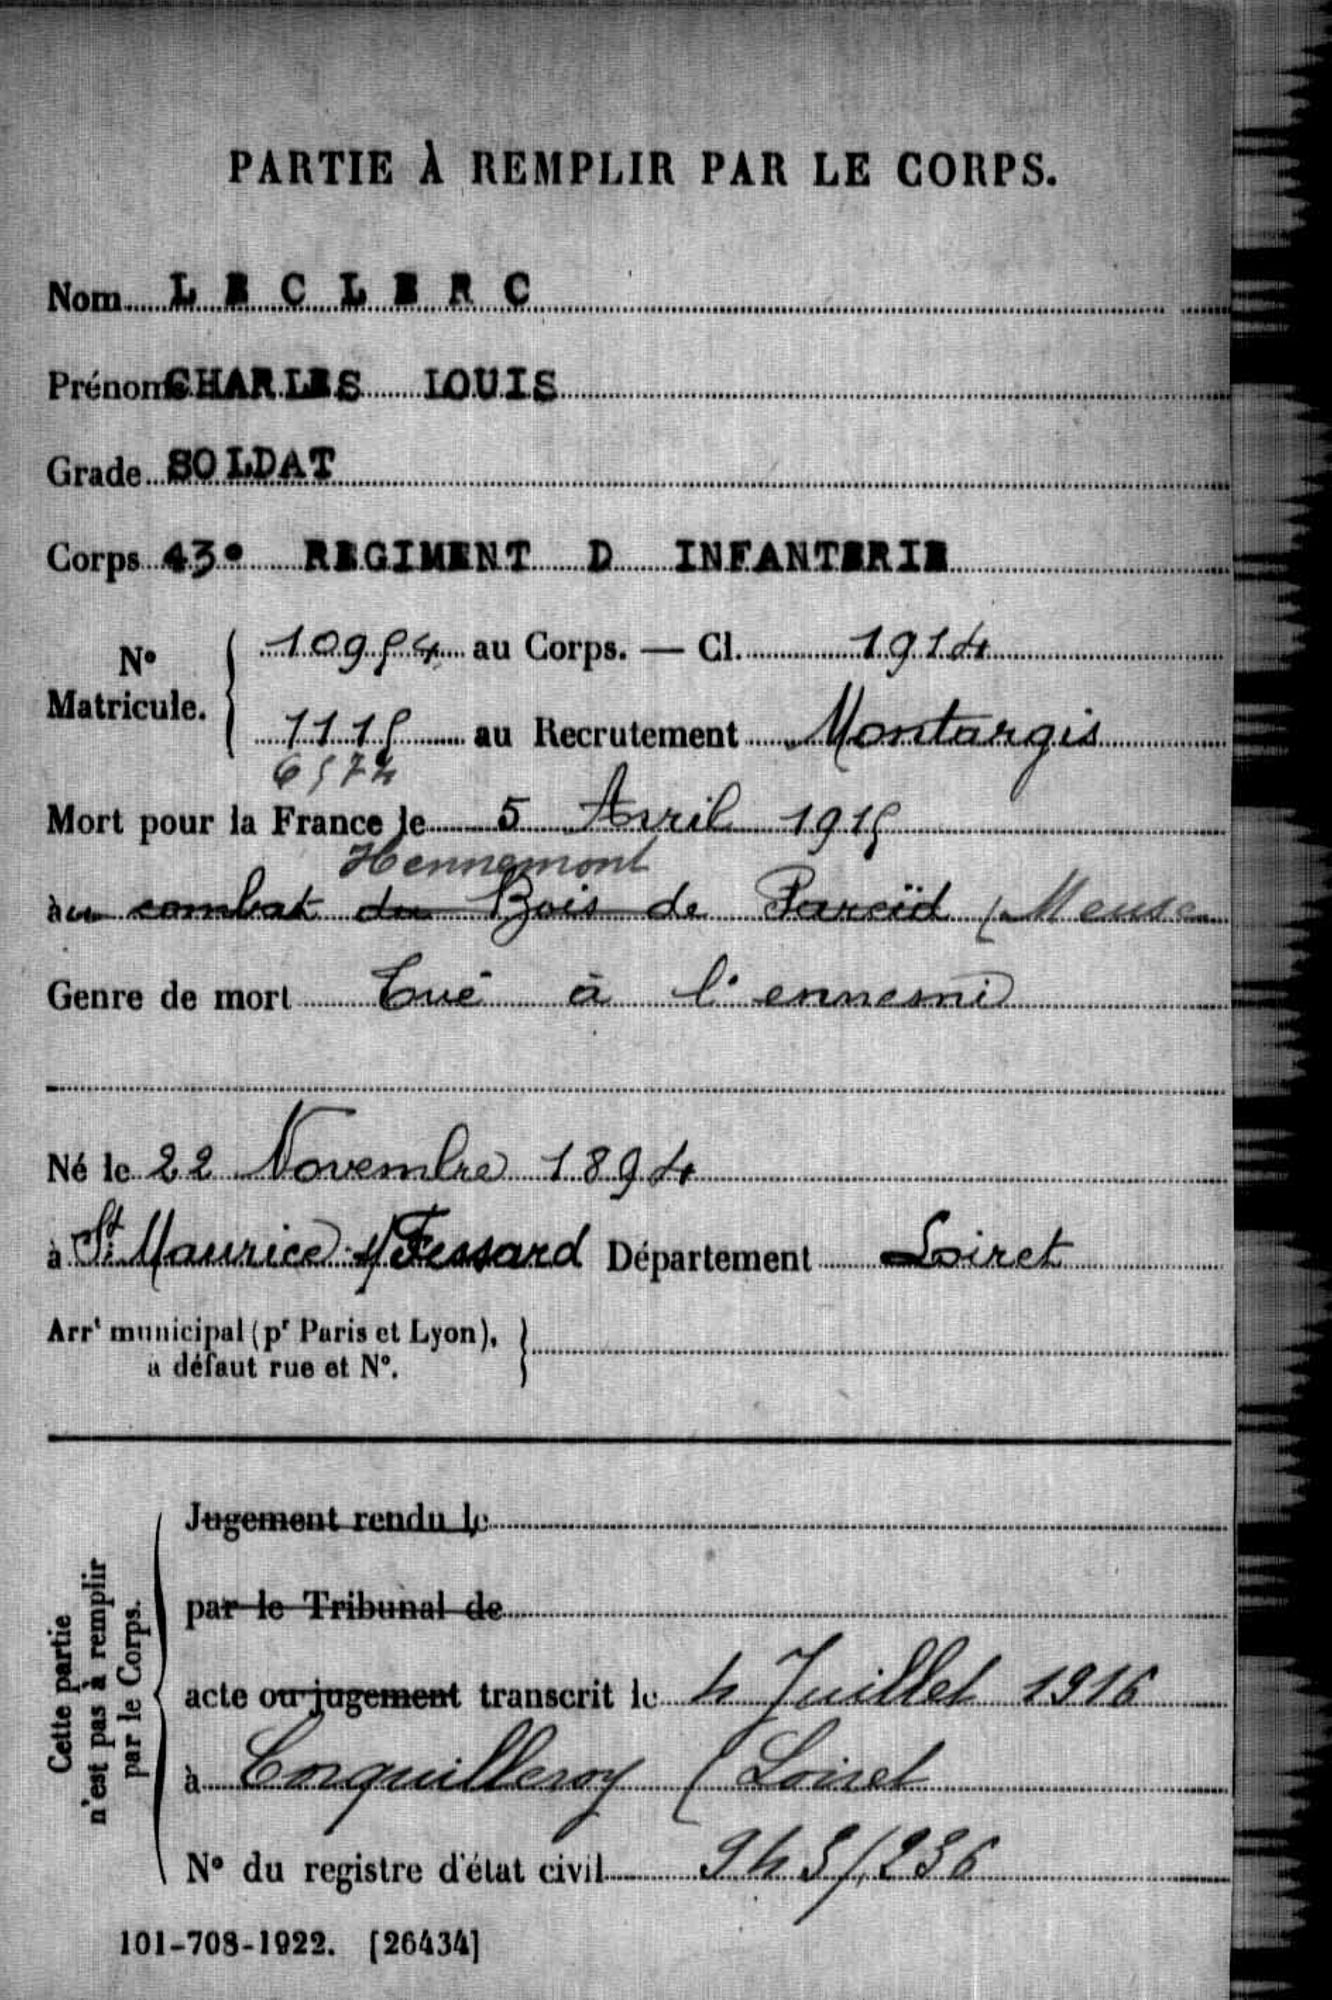 PARTIE À REMPLIR PAR LE CORPS.
Nom LECLERC
Prénoms CHARLES LOUIS
Grade SOLDAT
Corps 43e REGIMENT D INFANTERIE
No Matricule. 10954 au Corps. — Cl. 1914
1115 au Recrutement Montargis
6574
Mort pour la France le 5 Avril 1915
Hennemont
au combat du Bois de Pareïd (Meuse
Genre de mort Tué à l'ennemi
Né le 22 Novembre 1894
à St Maurice s/ Fessard Département Loiret
Arrt municipal (pr Paris et Lyon),
à défaut rue et No.
Cette partie n'est pas à remplir par le Corps.
Jugement rendu le
par le Tribunal de
acte ou jugement transcrit le 4 Juillet 1916
à Corquilleroy (Loiret
No du registre d'état civil 943/236
101-708-1922. [26434]